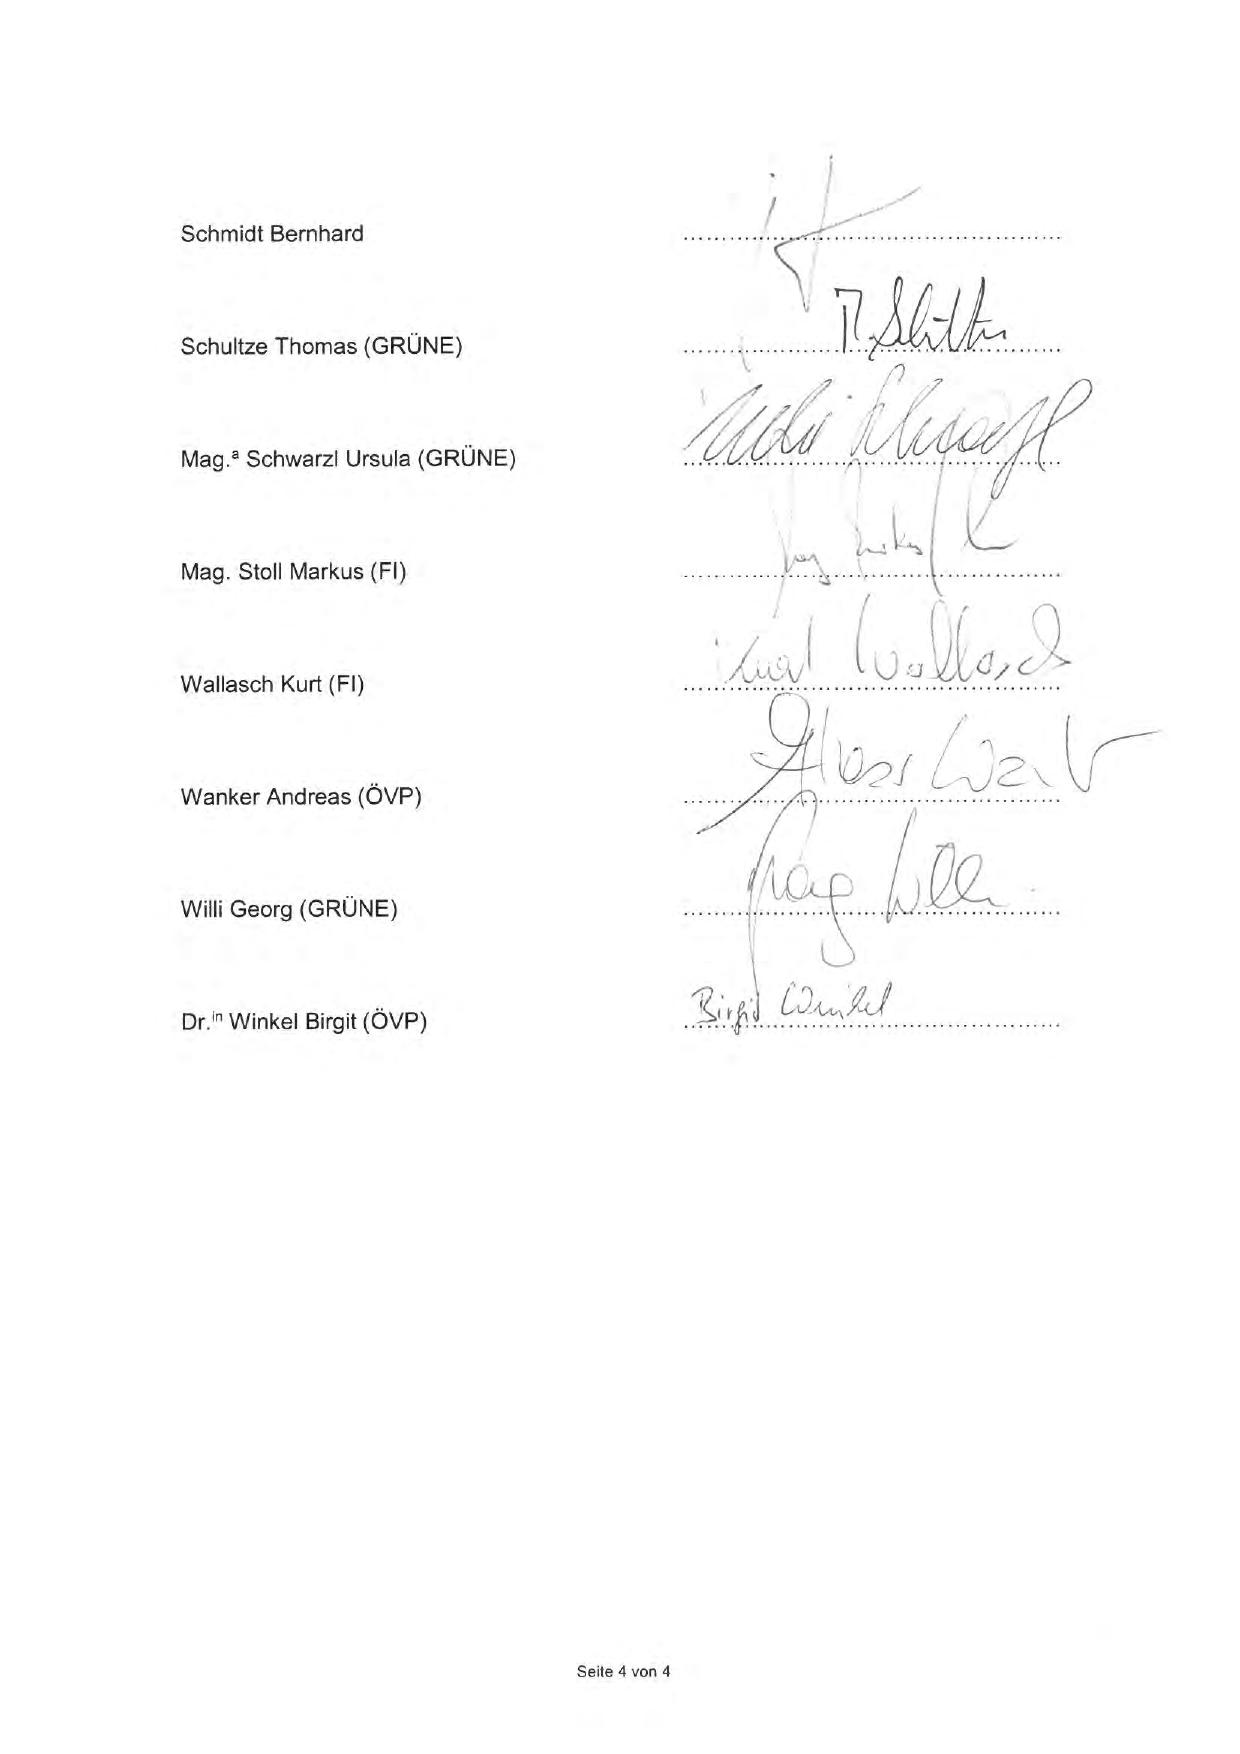 Schmidt Bernhard
Schultze Thomas (GRÜNE)
Mag.ª Schwarzl Ursula (GRÜNE)
Mag. Stoll Markus (FI)
Wallasch Kurt (FI) Kurt Wallasch
Wanker Andreas (ÖVP)
Willi Georg (GRÜNE) Georg Willi
Dr.ⁱⁿ Winkel Birgit (ÖVP) Birgit Winkel
Seite 4 von 4